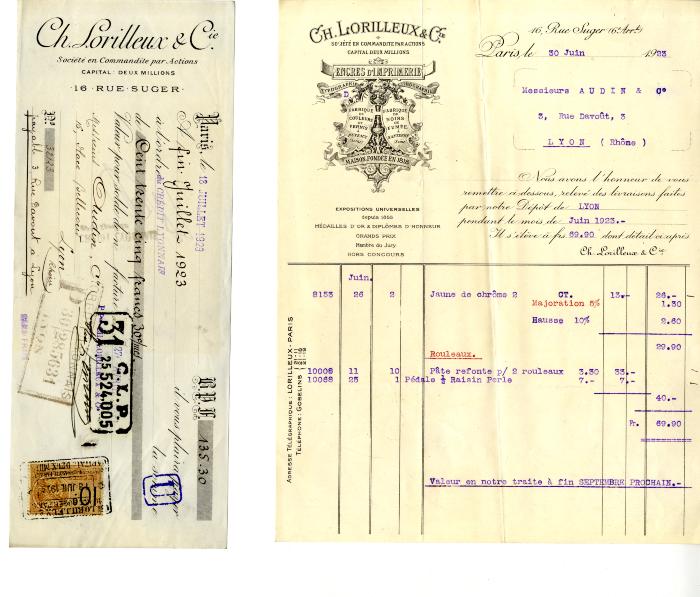 Ch. Lorilleux & Cie
Société en Commandite par Actions
CAPITAL: DEUX MILLIONS
16 · RUE · SUGER
Paris, le 18 JUILLET 1923
A fin Juillet 1923 il vous plaira
à l'ordre du CRÉDIT LYONNAIS
de Cent trente cinq francs 30
valeur pour solde de n/ facture
B.P.F. 135.30
Monsieur Audin & Cie
Lyon
(Rhône)
payable 3 Rue Davout à Lyon
31
C.L.P.
25524.005
U
10
CH. LORILLEUX & Cie
SOCIÉTÉ EN COMMANDITE PAR ACTIONS
CAPITAL DEUX MILLIONS
ENCRES D'IMPRIMERIE
TYPOGRAPHIE
LITHOGRAPHIE
FABRIQUE DE COULEURS ET VERNIS
FABRIQUE DE NOIRS DE FUMÉE
PUTEAUX
NANTERRE
MAISON FONDÉE EN 1818
EXPOSITIONS UNIVERSELLES
depuis 1855
MÉDAILLES D'OR & DIPLÔMES D'HONNEUR
GRANDS PRIX
Membre du Jury
HORS CONCOURS
16, Rue Suger (6e Arrt)
Paris, le 30 Juin 1923
Messieurs AUDIN & C°
3, Rue Davoût, 3
LYON (Rhône)
Nous avons l'honneur de vous
remettre ci-dessous, relevé des livraisons faites
par notre Dépôt de LYON
pendant le mois de Juin 1923.-
Il s'élève à frs 69.90 dont détail ci-après
Ch. Lorilleux & Cie
Juin.
8153 26 2 Jaune de chrôme 2 CT. 13.- 26.-
Majoration 5% 1.30
Hausse 10% 2.60
29.90
Rouleaux.
10008 11 10 Pâte refonte p/ 2 rouleaux 3.30 33.-
10068 25 1 Pédale ½ Raisin Perle 7.- 7.-
40.-
Fr. 69.90
Valeur en notre traite à fin SEPTEMBRE PROCHAIN.-
ADRESSE TÉLÉGRAPHIQUE: LORILLEUX-PARIS
TÉLÉPHONE: GOBELINS